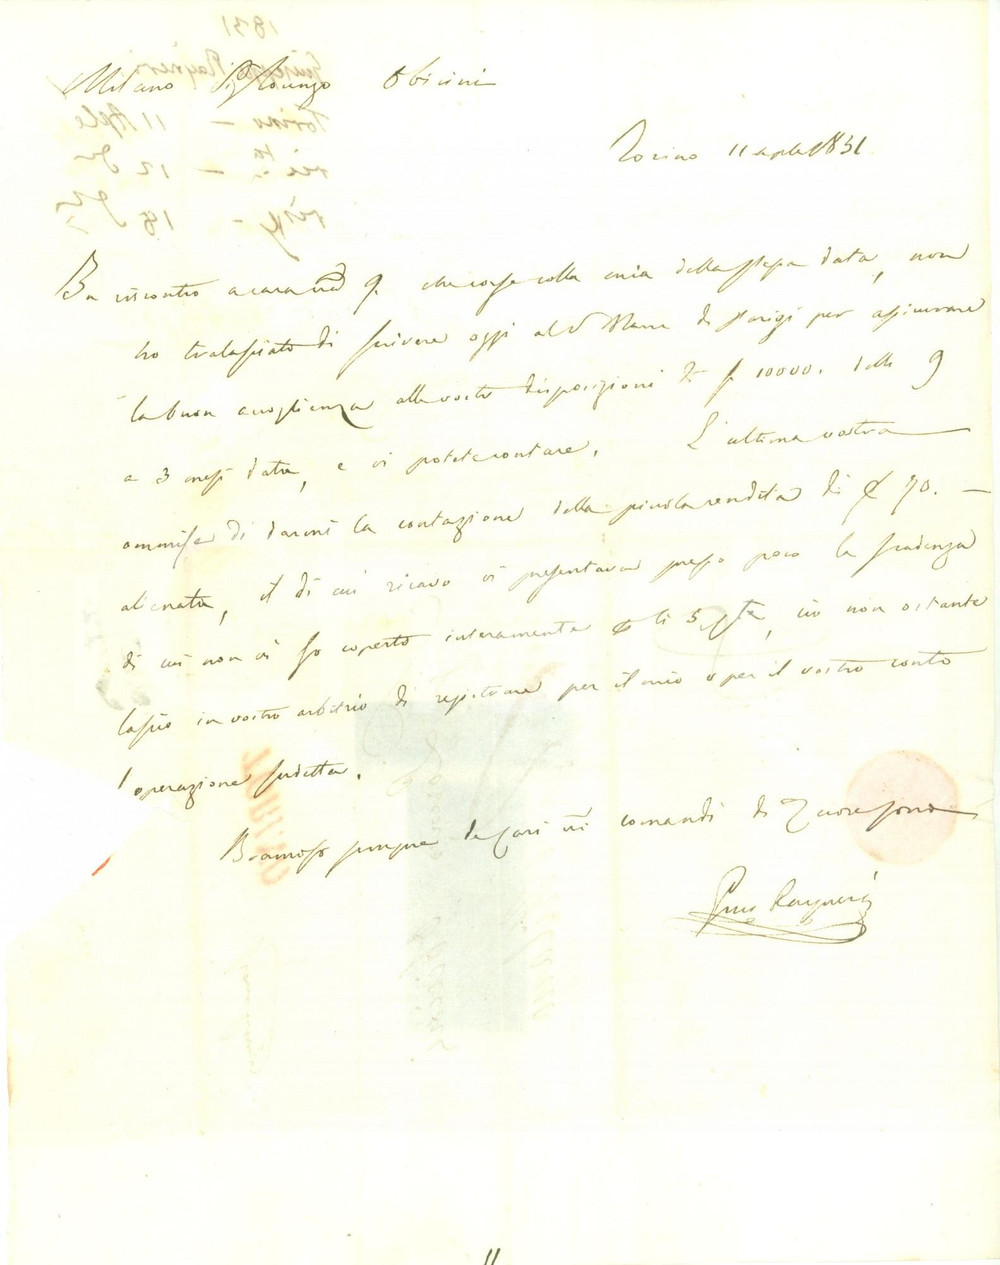 Milano Sig. Lorenzo Obicini
Torino 11 aple 1831
In riscontro a cara vra 9. che corse colla mia della stessa data, non
ho tralasciato di scrivere oggi al di Parigi per assicurare
la buon accoglienza alle vostre disposizioni di f 10000. delli 9
a 3 mesi data, e vi potete contare. L'ultima vostra
ommise di darmi la contazione della piccola rendita di 70. —
alienata, il di cui ricavo vi presentava presso poco la scadenza
di cui non vi fo coperto interamente, ciò non ostante
lascio in vostro arbitrio di registrare per il mio o per il vostro conto
l'operazione sudetta.
Bramoso sempre de cari vri comandi di cuore sono
Giuse Rayneri
11
1831
Giuseppe Rayneri
Torino — 11 Aple
ric.ta — 12
risp. — 18